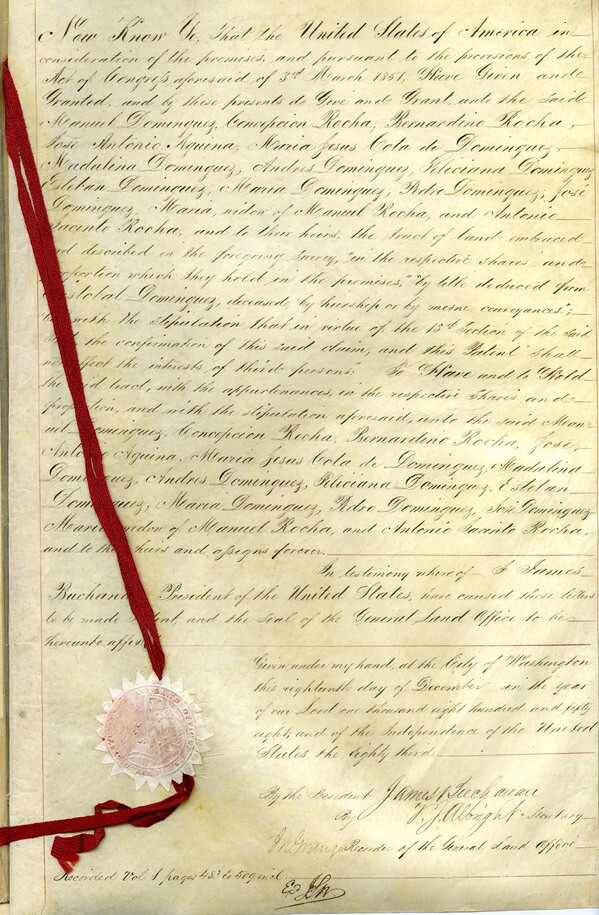 Now Know Ye, That the United States of America in
consideration of the premises, and pursuant to the provisions of the
Act of Congress aforesaid of 3rd March 1851, Have Given and
Granted, and by these presents do Give and Grant, unto the said
Manuel Dominguez, Concepcion Rocha, Bernardino Rocha,
José Antonio Aquina, Maria Jesus Cota de Dominguez,
Madalina Dominguez, Andres Dominguez, Feliciana Dominguez
Esteban Dominguez, Maria Dominguez, Pedro Dominguez, José
Dominguez, Maria, widow of Manuel Rocha, and Antonio
Jacinto Rocha, and to their heirs, the tract of land embraced
and described in the foregoing survey, "in the respective shares and
proportion which they hold in the premises," "by title deduced from
Cristobal Dominguez, deceased, by heirship or by mesne conveyances";
with the stipulation that in virtue of the 15th Section of the said
the confirmation of this said claim, and this Patent "shall
not affect the interests of third persons; To Have and to Hold
the said tract, with the appurtenances, in the respective shares and
proportion, and with the stipulation aforesaid, unto the said Man-
uel Dominguez, Concepcion Rocha, Bernardino Rocha, José
Antonio Aquina, Maria Jesus Cota de Dominguez, Madalina
Dominguez, Andres Dominguez, Feliciana Dominguez, Esteban
Dominguez, Maria Dominguez, Pedro Dominguez, José Dominguez
Maria widow of Manuel Rocha, and Antonio Jacinto Rocha,
and to their heirs and assigns forever.
In testimony whereof I James
Buchanan President of the United States, have caused these letters
to be made Patent, and the Seal of the General Land Office to be
hereunto affixed
Given under my hand, at the City of Washington
this eighteenth day of December in the year
of our Lord one thousand eight hundred and fifty
eight, and of the Independence of the United
States the eighty third
By the President James Buchanan
By T. J. Albright Secretary
Recorder of the General Land Office
Recorded Vol 1 pages 483 to 509 incl.
Ex